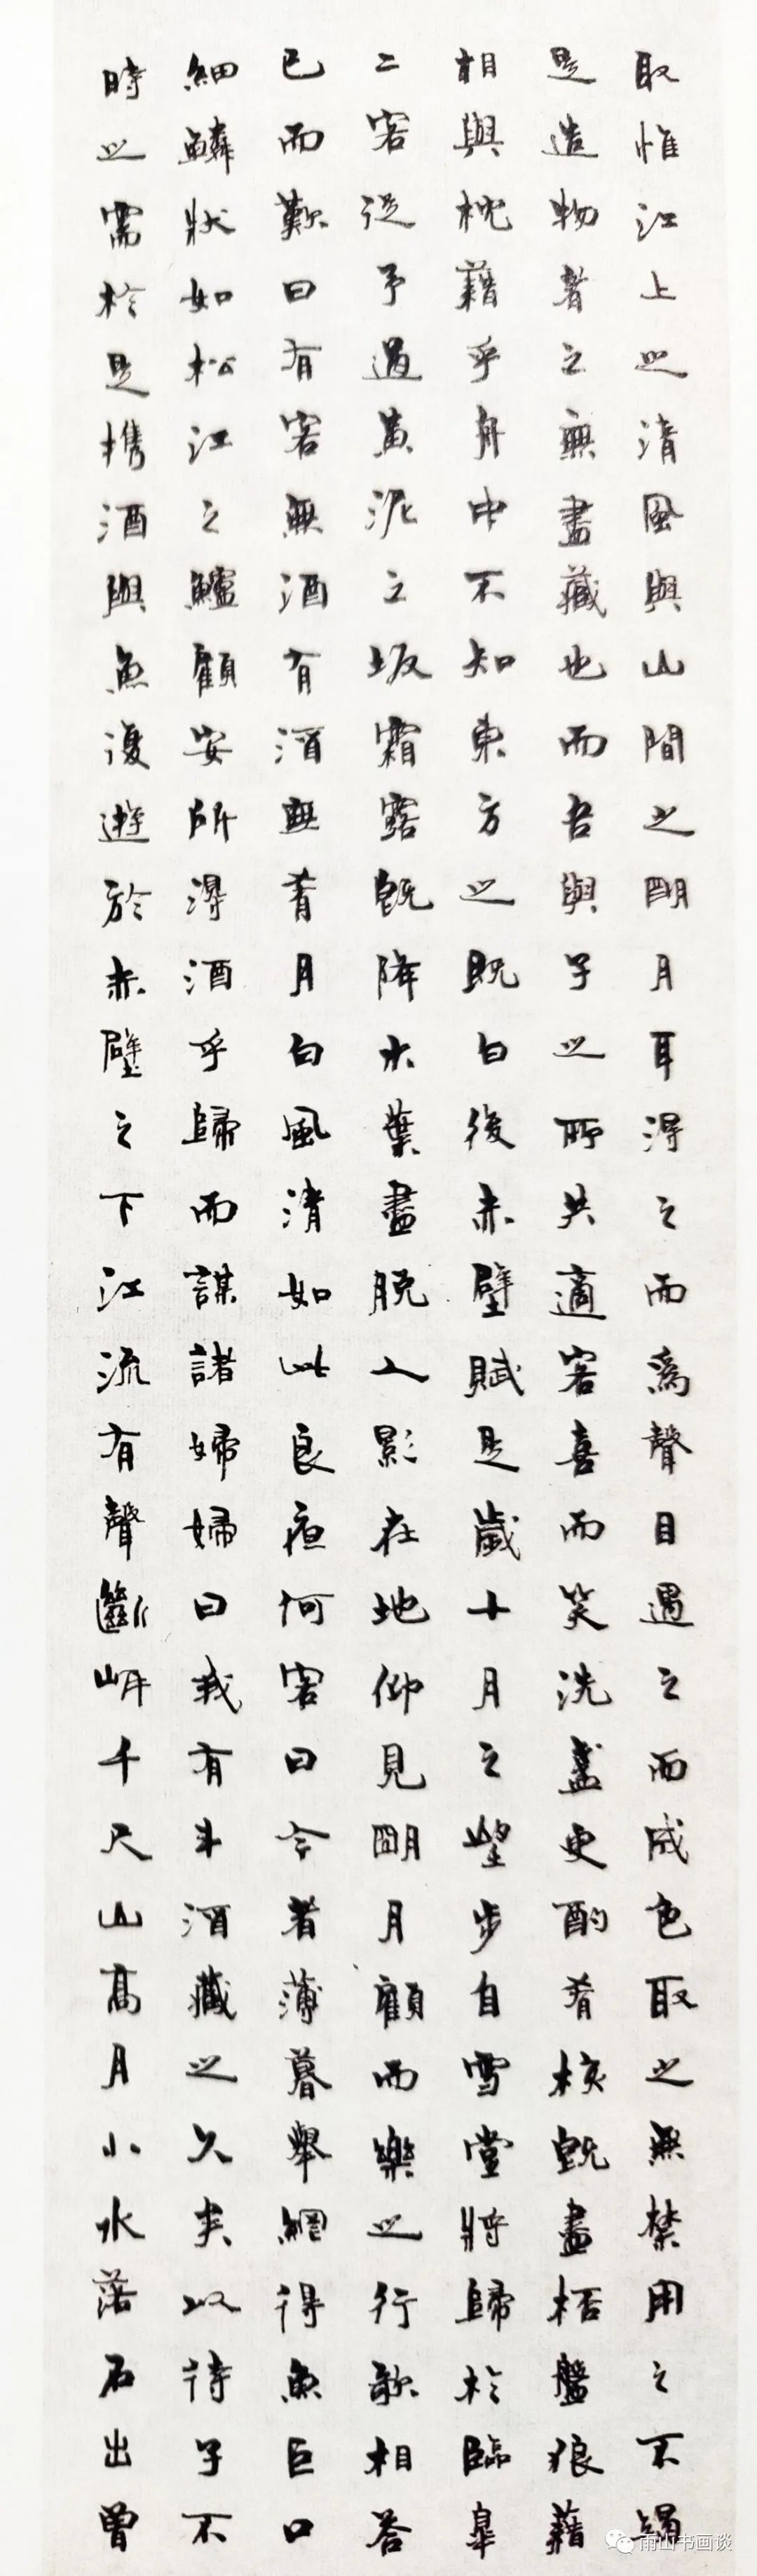 取惟江上之清風與山間之明月耳得之而爲聲目遇之而成色取之無禁用之不竭
是造物者之無盡藏也而吾與子之所共適客喜而笑洗盞更酌肴核既盡杯盤狼藉
相與枕藉乎舟中不知東方之既白後赤壁賦是歲十月之望步自雪堂將歸於臨皋
二客從予過黃泥之坂霜露既降木葉盡脫人影在地仰見明月顧而樂之行歌相答
已而歎曰有客無酒有酒無肴月白風清如此良夜何客曰今者薄暮舉網得魚巨口
細鱗狀如松江之鱸顧安所得酒乎歸而謀諸婦婦曰我有斗酒藏之久矣以待子不
時之需於是攜酒與魚復遊於赤壁之下江流有聲斷岸千尺山高月小水落石出曾
雨山书画谈